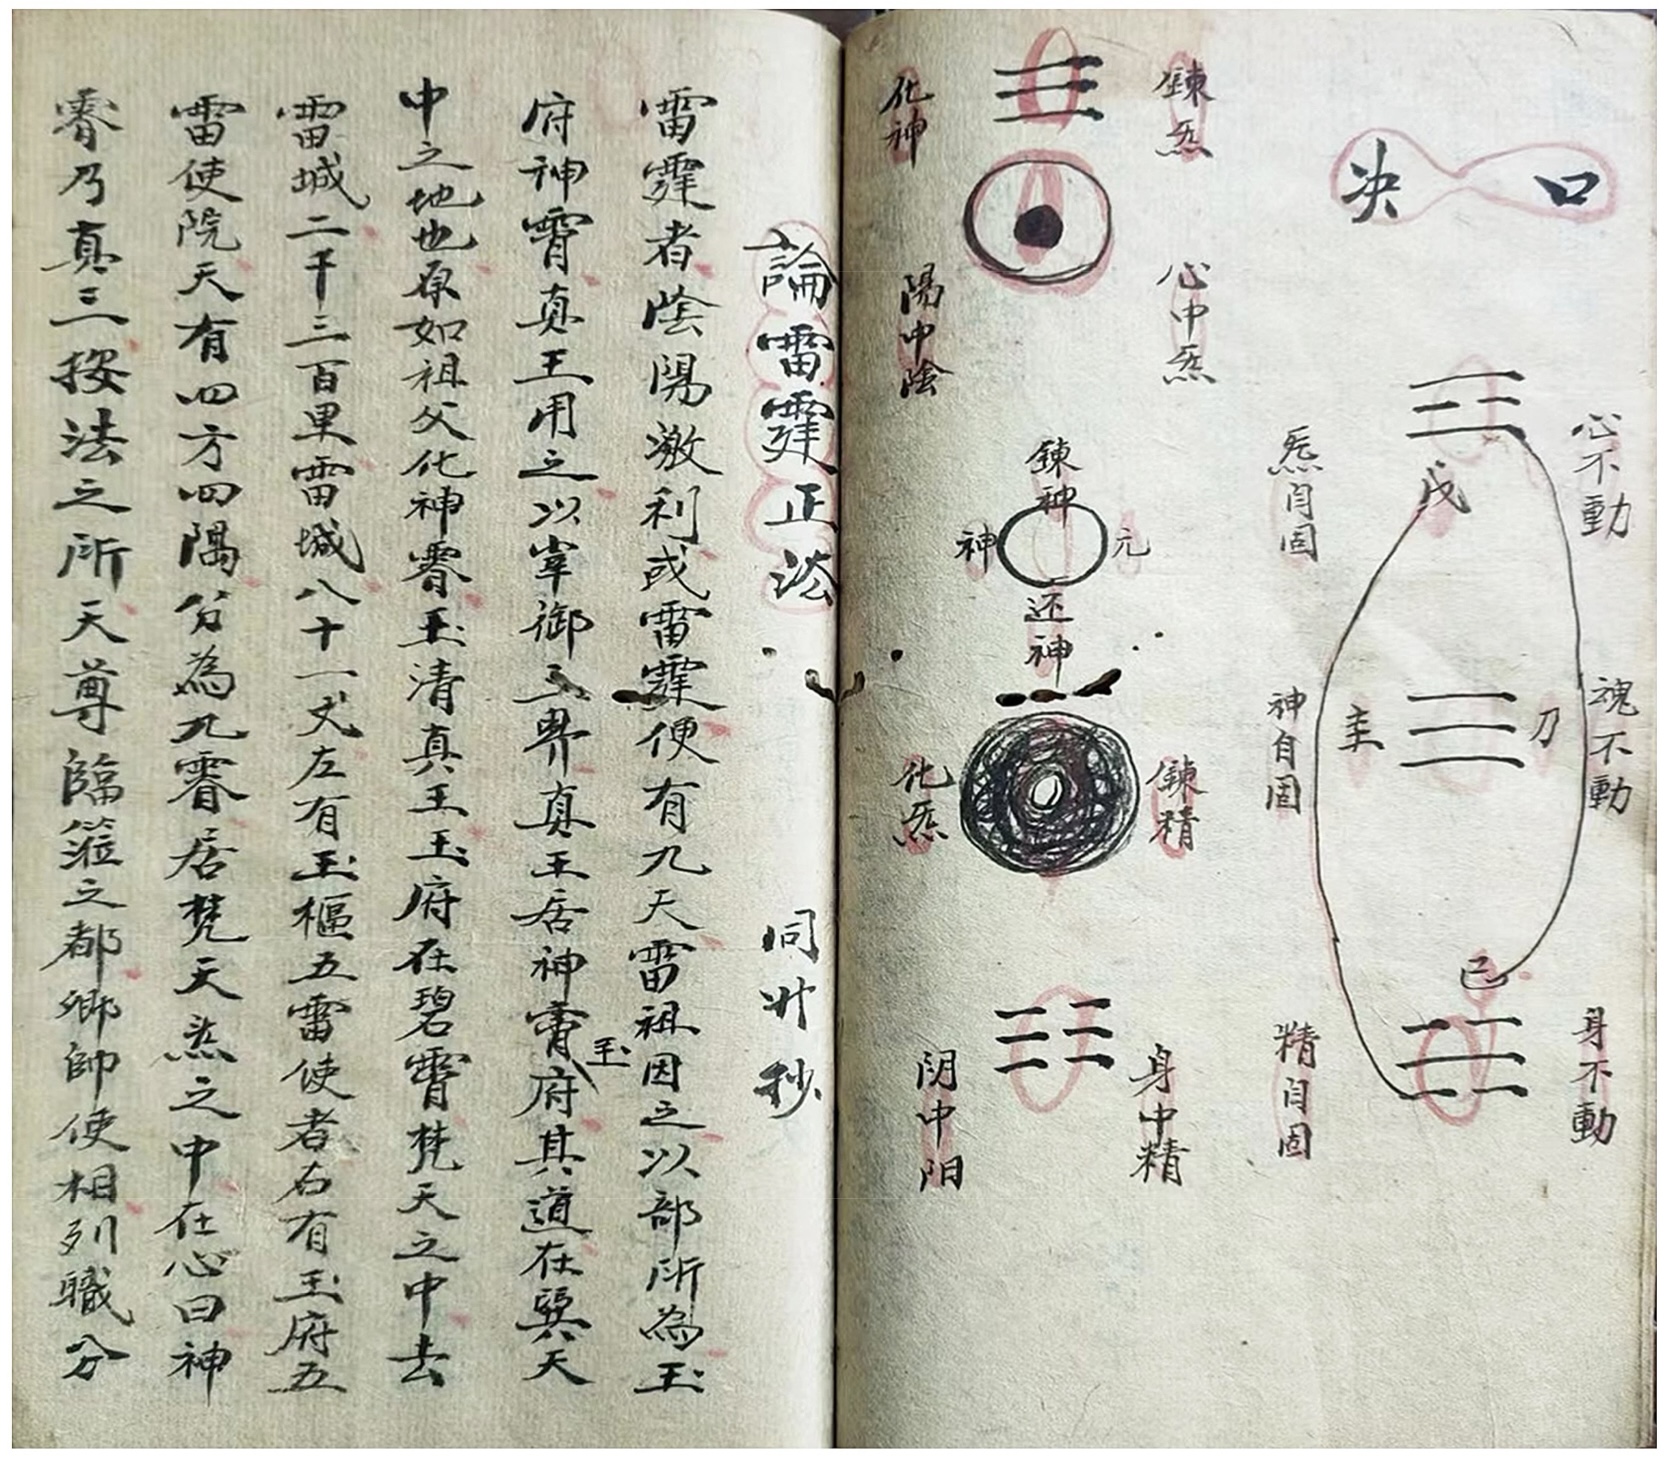 口决
心不動
炁自固
戊
魂不動
刀
圭
神自固
己
身不動
精自固
鍊炁
化神
心中炁
陽中陰
鍊神
元
神
还神
鍊精
化炁
身中精
阴中阳
論雷霆正法 同廾抄
雷霆者陰陽激利或雷霆便有九天雷祖因之以部所為玉
府神霄真王用之以宰御三界真王居神霄玉府其道在巽天
中之地也原如祖父化神霄玉清真王玉府在碧霄梵天之中去
雷城二千三百里雷城八十一丈左有玉樞五雷使者右有玉府五
雷使院天有四方四隅分為九霄居梵天炁之中在心曰神
霄乃真三按法之所天尊臨蒞之都卿帥使相列職分